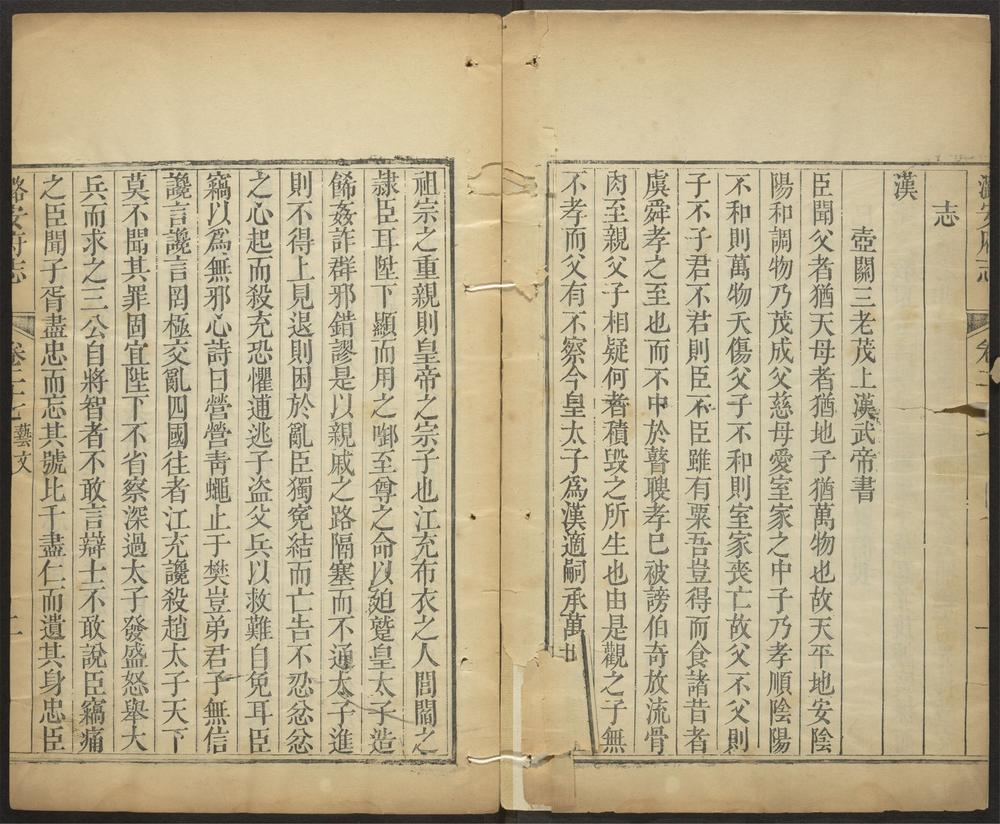 潞安府志
志
漢
壺關三老茂上漢武帝書
臣聞父者猶天母者猶地子猶萬物也故天平地安陰
陽和調物乃茂成父慈母愛室家之中子乃孝順陰陽
不和則萬物夭傷父子不和則室家喪亡故父不父則
子不子君不君則臣不臣雖有粟吾豈得而食諸昔者
虞舜孝之至也而不中於瞽瞍孝已被謗伯奇放流骨
肉至親父子相疑何者積毀之所生也由是觀之子無
不孝而父有不察今皇太子爲漢適嗣承萬世
祖宗之重親則皇帝之宗子也江充布衣之人閭閻之
隷臣耳陛下顯而用之啣至尊之命以廹蹵皇太子造
餙姦詐群邪錯謬是以親戚之路隔塞而不通太子進
則不得上見退則困於亂臣獨寃結而亡告不忍忿忿
之心起而殺充恐懼逋逃子盗父兵以救難自免耳臣
竊以爲無邪心詩曰營營青蠅止于樊豈弟君子無信
讒言讒言罔極交亂四國往者江充讒殺趙太子天下
莫不聞其罪固宜陛下不省察深過太子發盛怒舉大
兵而求之三公自將智者不敢言辯士不敢說臣竊痛
之臣聞子胥盡忠而忘其號比干盡仁而遺其身忠臣
潞安府志 卷二十七 藝文 二